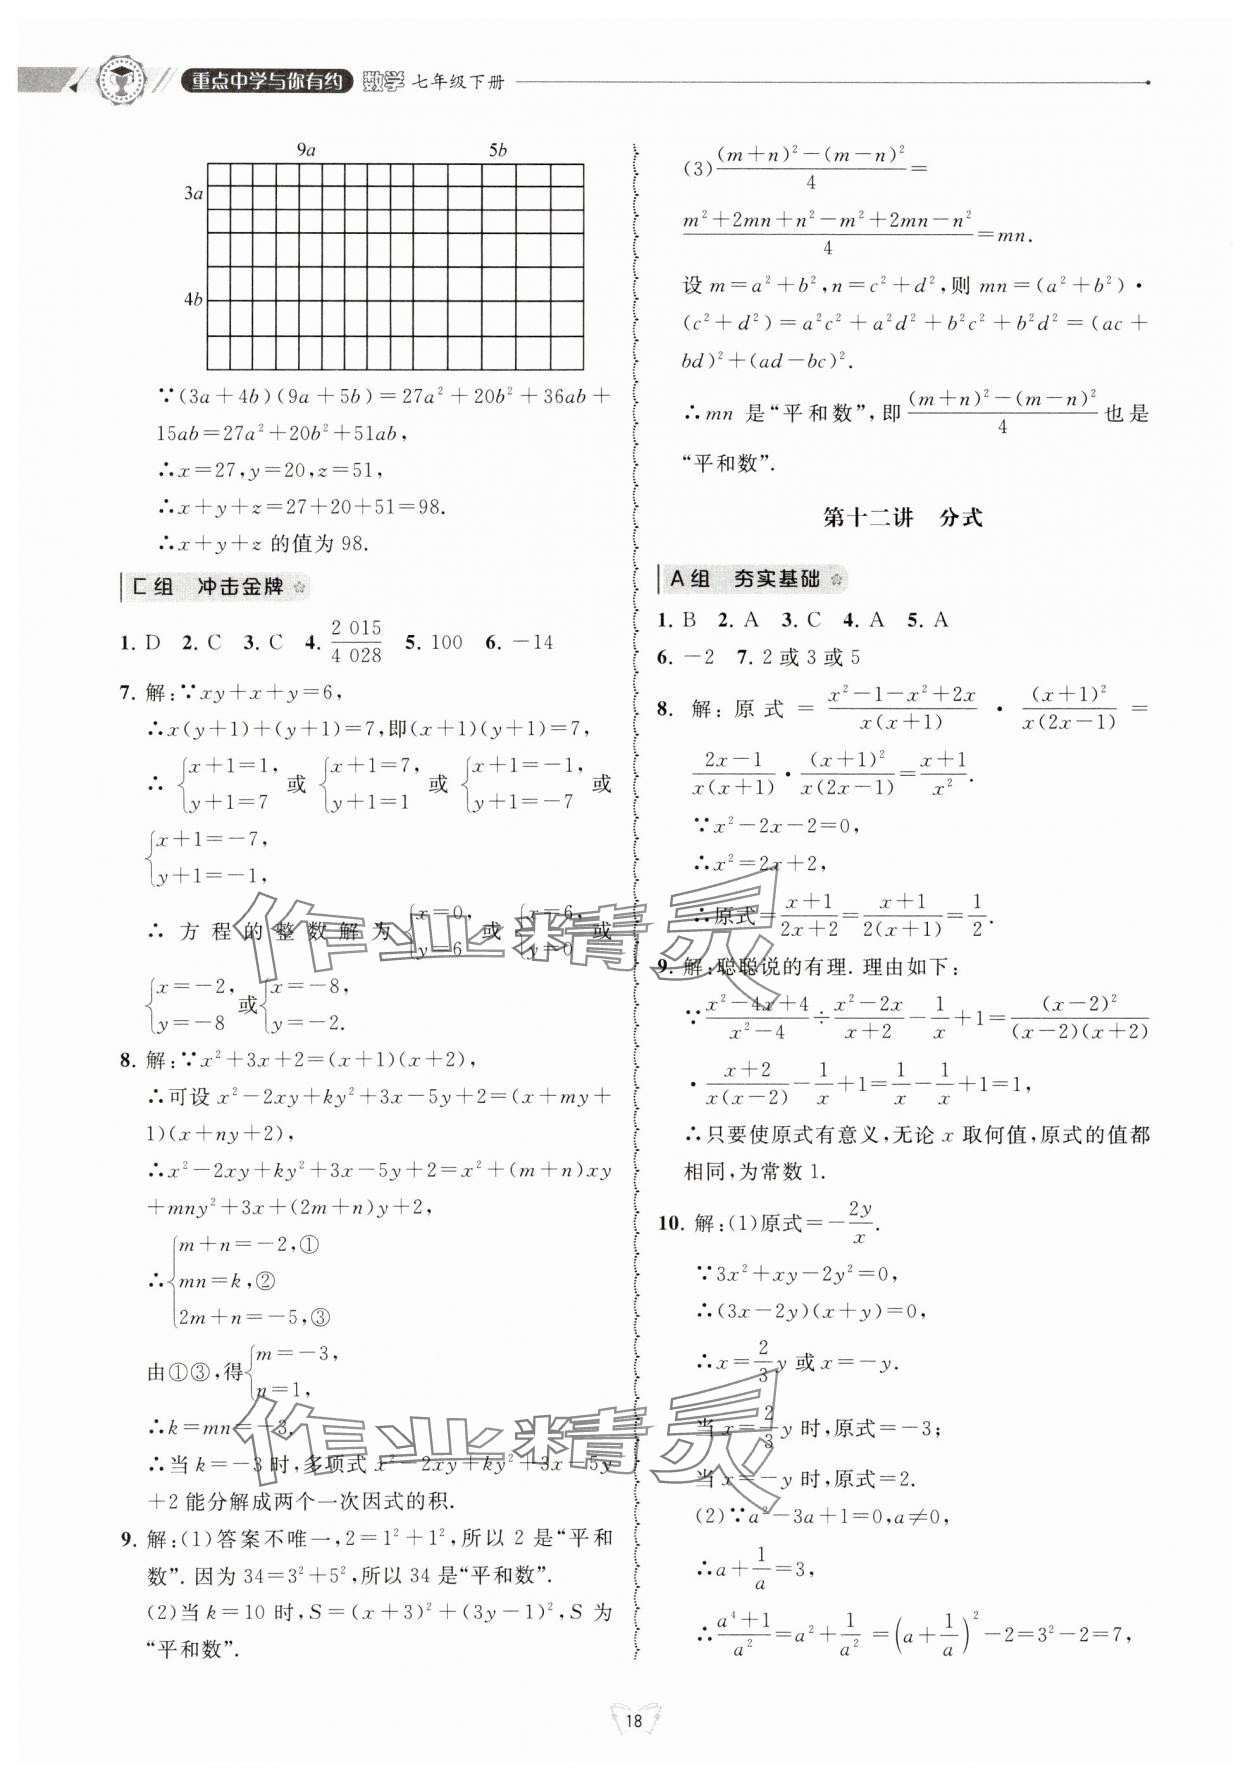 重点中学与你有约 数学 七年级下册
9a 5b
3a
4b
∵(3a+4b)(9a+5b)=27a²+20b²+36ab+
15ab=27a²+20b²+51ab,
∴x=27,y=20,z=51,
∴x+y+z=27+20+51=98.
∴x+y+z 的值为 98.
C组 冲击金牌
1. D 2. C 3. C 4. 2 015/4 028 5. 100 6. −14
7. 解:∵xy+x+y=6,
∴x(y+1)+(y+1)=7,即(x+1)(y+1)=7,
∴ {x+1=1, y+1=7 或 {x+1=7, y+1=1 或 {x+1=−1, y+1=−7 或
{x+1=−7, y+1=−1,
∴ 方程的整数解为 {x=0, y=6 或 {x=6, y=0 或
{x=−2, y=−8 或 {x=−8, y=−2.
8. 解:∵x²+3x+2=(x+1)(x+2),
∴可设 x²−2xy+ky²+3x−5y+2=(x+my+
1)(x+ny+2),
∴x²−2xy+ky²+3x−5y+2=x²+(m+n)xy
+mny²+3x+(2m+n)y+2,
∴ {m+n=−2,①
mn=k,②
2m+n=−5,③
由①③,得 {m=−3, n=1,
∴k=mn=−3.
∴当 k=−3 时,多项式 x²−2xy+ky²+3x−5y
+2 能分解成两个一次因式的积.
9. 解:(1)答案不唯一,2=1²+1²,所以 2 是“平和
数”. 因为 34=3²+5²,所以 34 是“平和数”.
(2)当 k=10 时,S=(x+3)²+(3y−1)²,S 为
“平和数”.
(3) ((m+n)²−(m−n)²)/4 =
(m²+2mn+n²−m²+2mn−n²)/4 =mn.
设 m=a²+b²,n=c²+d²,则 mn=(a²+b²)·
(c²+d²)=a²c²+a²d²+b²c²+b²d²=(ac+
bd)²+(ad−bc)².
∴mn 是“平和数”,即 ((m+n)²−(m−n)²)/4 也是
“平和数”.
第十二讲 分式
A组 夯实基础
1. B 2. A 3. C 4. A 5. A
6. −2 7. 2 或 3 或 5
8. 解: 原式 = (x²−1−x²+2x)/(x(x+1)) · (x+1)²/(x(2x−1)) =
(2x−1)/(x(x+1)) · (x+1)²/(x(2x−1)) = (x+1)/x².
∵x²−2x−2=0,
∴x²=2x+2,
∴原式= (x+1)/(2x+2) = (x+1)/(2(x+1)) = 1/2.
9. 解:聪聪说的有理. 理由如下:
∵ (x²−4x+4)/(x²−4) ÷ (x²−2x)/(x+2) − 1/x +1= (x−2)²/((x−2)(x+2))
· (x+2)/(x(x−2)) − 1/x +1= 1/x − 1/x +1=1,
∴只要使原式有意义,无论 x 取何值,原式的值都
相同,为常数 1.
10. 解:(1)原式=− 2y/x.
∵3x²+xy−2y²=0,
∴(3x−2y)(x+y)=0,
∴x= 2/3 y 或 x=−y.
当 x= 2/3 y 时,原式=−3;
当 x=−y 时,原式=2.
(2)∵a²−3a+1=0,a≠0,
∴a+ 1/a =3,
∴ (a⁴+1)/a² =a²+ 1/a² =(a+ 1/a)²−2=3²−2=7,
18
作业精灵
作业精灵